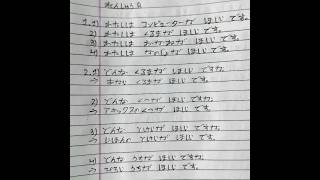 れんしゅう B
1. 1) わたしは コンピューターが ほしい です。
2) わたしは くるまが ほしい です。
3) わたしは
4) わたしは ほしい です。
2. 1) どんな くるまが ほしい ですか。
→ くるまが ほしい です。
2) どんな くつが ほしい ですか。
→ くつが ほしい です。
3) どんな とけいが ほしい ですか。
→ にほんの とけいが ほしい です。
4) どんな うちが ほしい ですか。
→ ひろい うちが ほしい です。